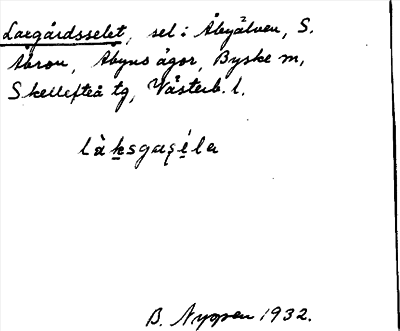 Laxgårdsselet, sel i Åbyälven, S.
Åbron, Åbyns ägor, Byske m,
Skellefteå tg, Västerb. l.
làksgaṣéla
B. Nygren 1932.